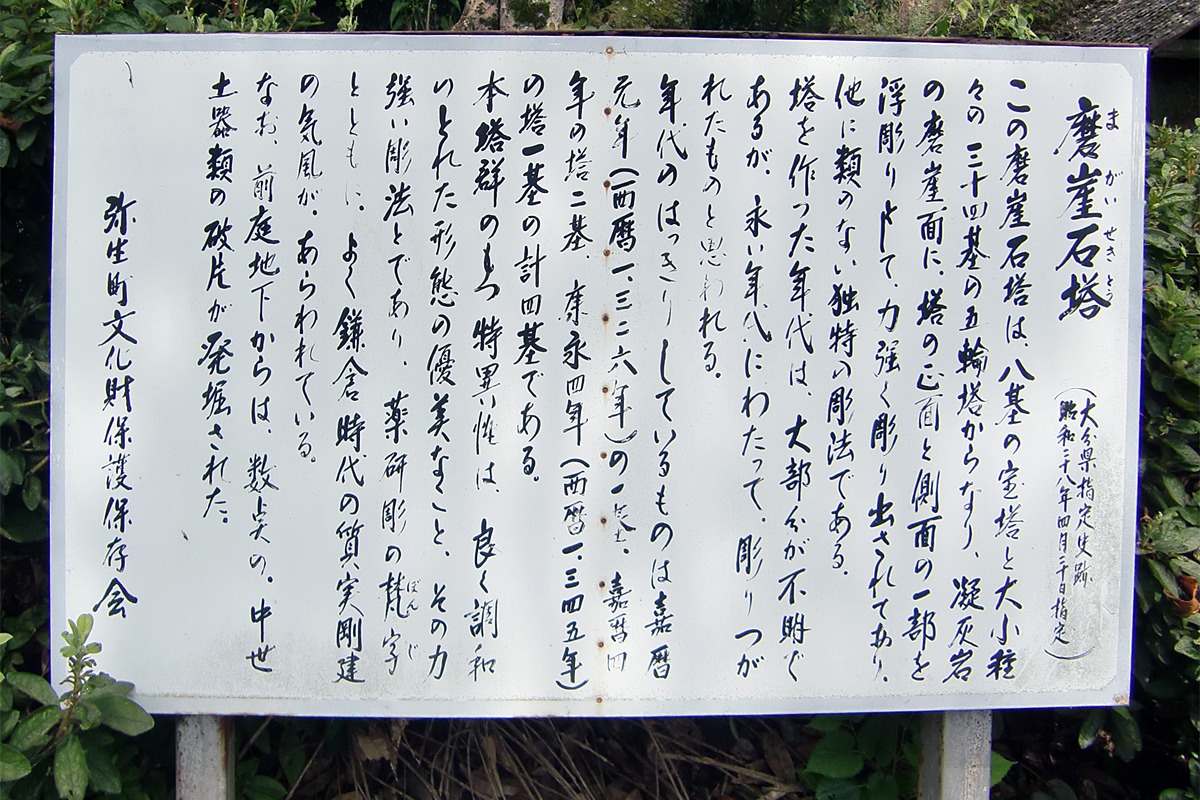 磨崖石塔
まがいせきとう
(大分県指定史跡
昭和二十八年四月二十日指定)
この磨崖石塔は、八基の宝塔と大小種
々の三十四基の五輪塔からなり、凝灰岩
の磨崖面に、塔の正面と側面の一部を
浮彫りとして、力強く彫り出されてあり、
他に類のない独特の彫法である。
塔を作った年代は、大部分が不明で
あるが、永い年代にわたって、彫りつが
れたものと思われる。
年代のはっきりしているものは嘉暦
元年(西暦一、三二六年)の一基、嘉暦四
年の塔二基、康永四年(西暦一、三四五年)
の塔一基の計四基である。
本塔群のもつ特異性は、良く調和
のとれた形態の優美なこと、その力
強い彫法とであり、薬研彫の梵字
ぼんじ
とともに、よく鎌倉時代の質実剛建
の気風が、あらわれている。
なお、前庭地下からは、数点の、中世
土器類の破片が発掘された。
弥生町文化財保護保存会